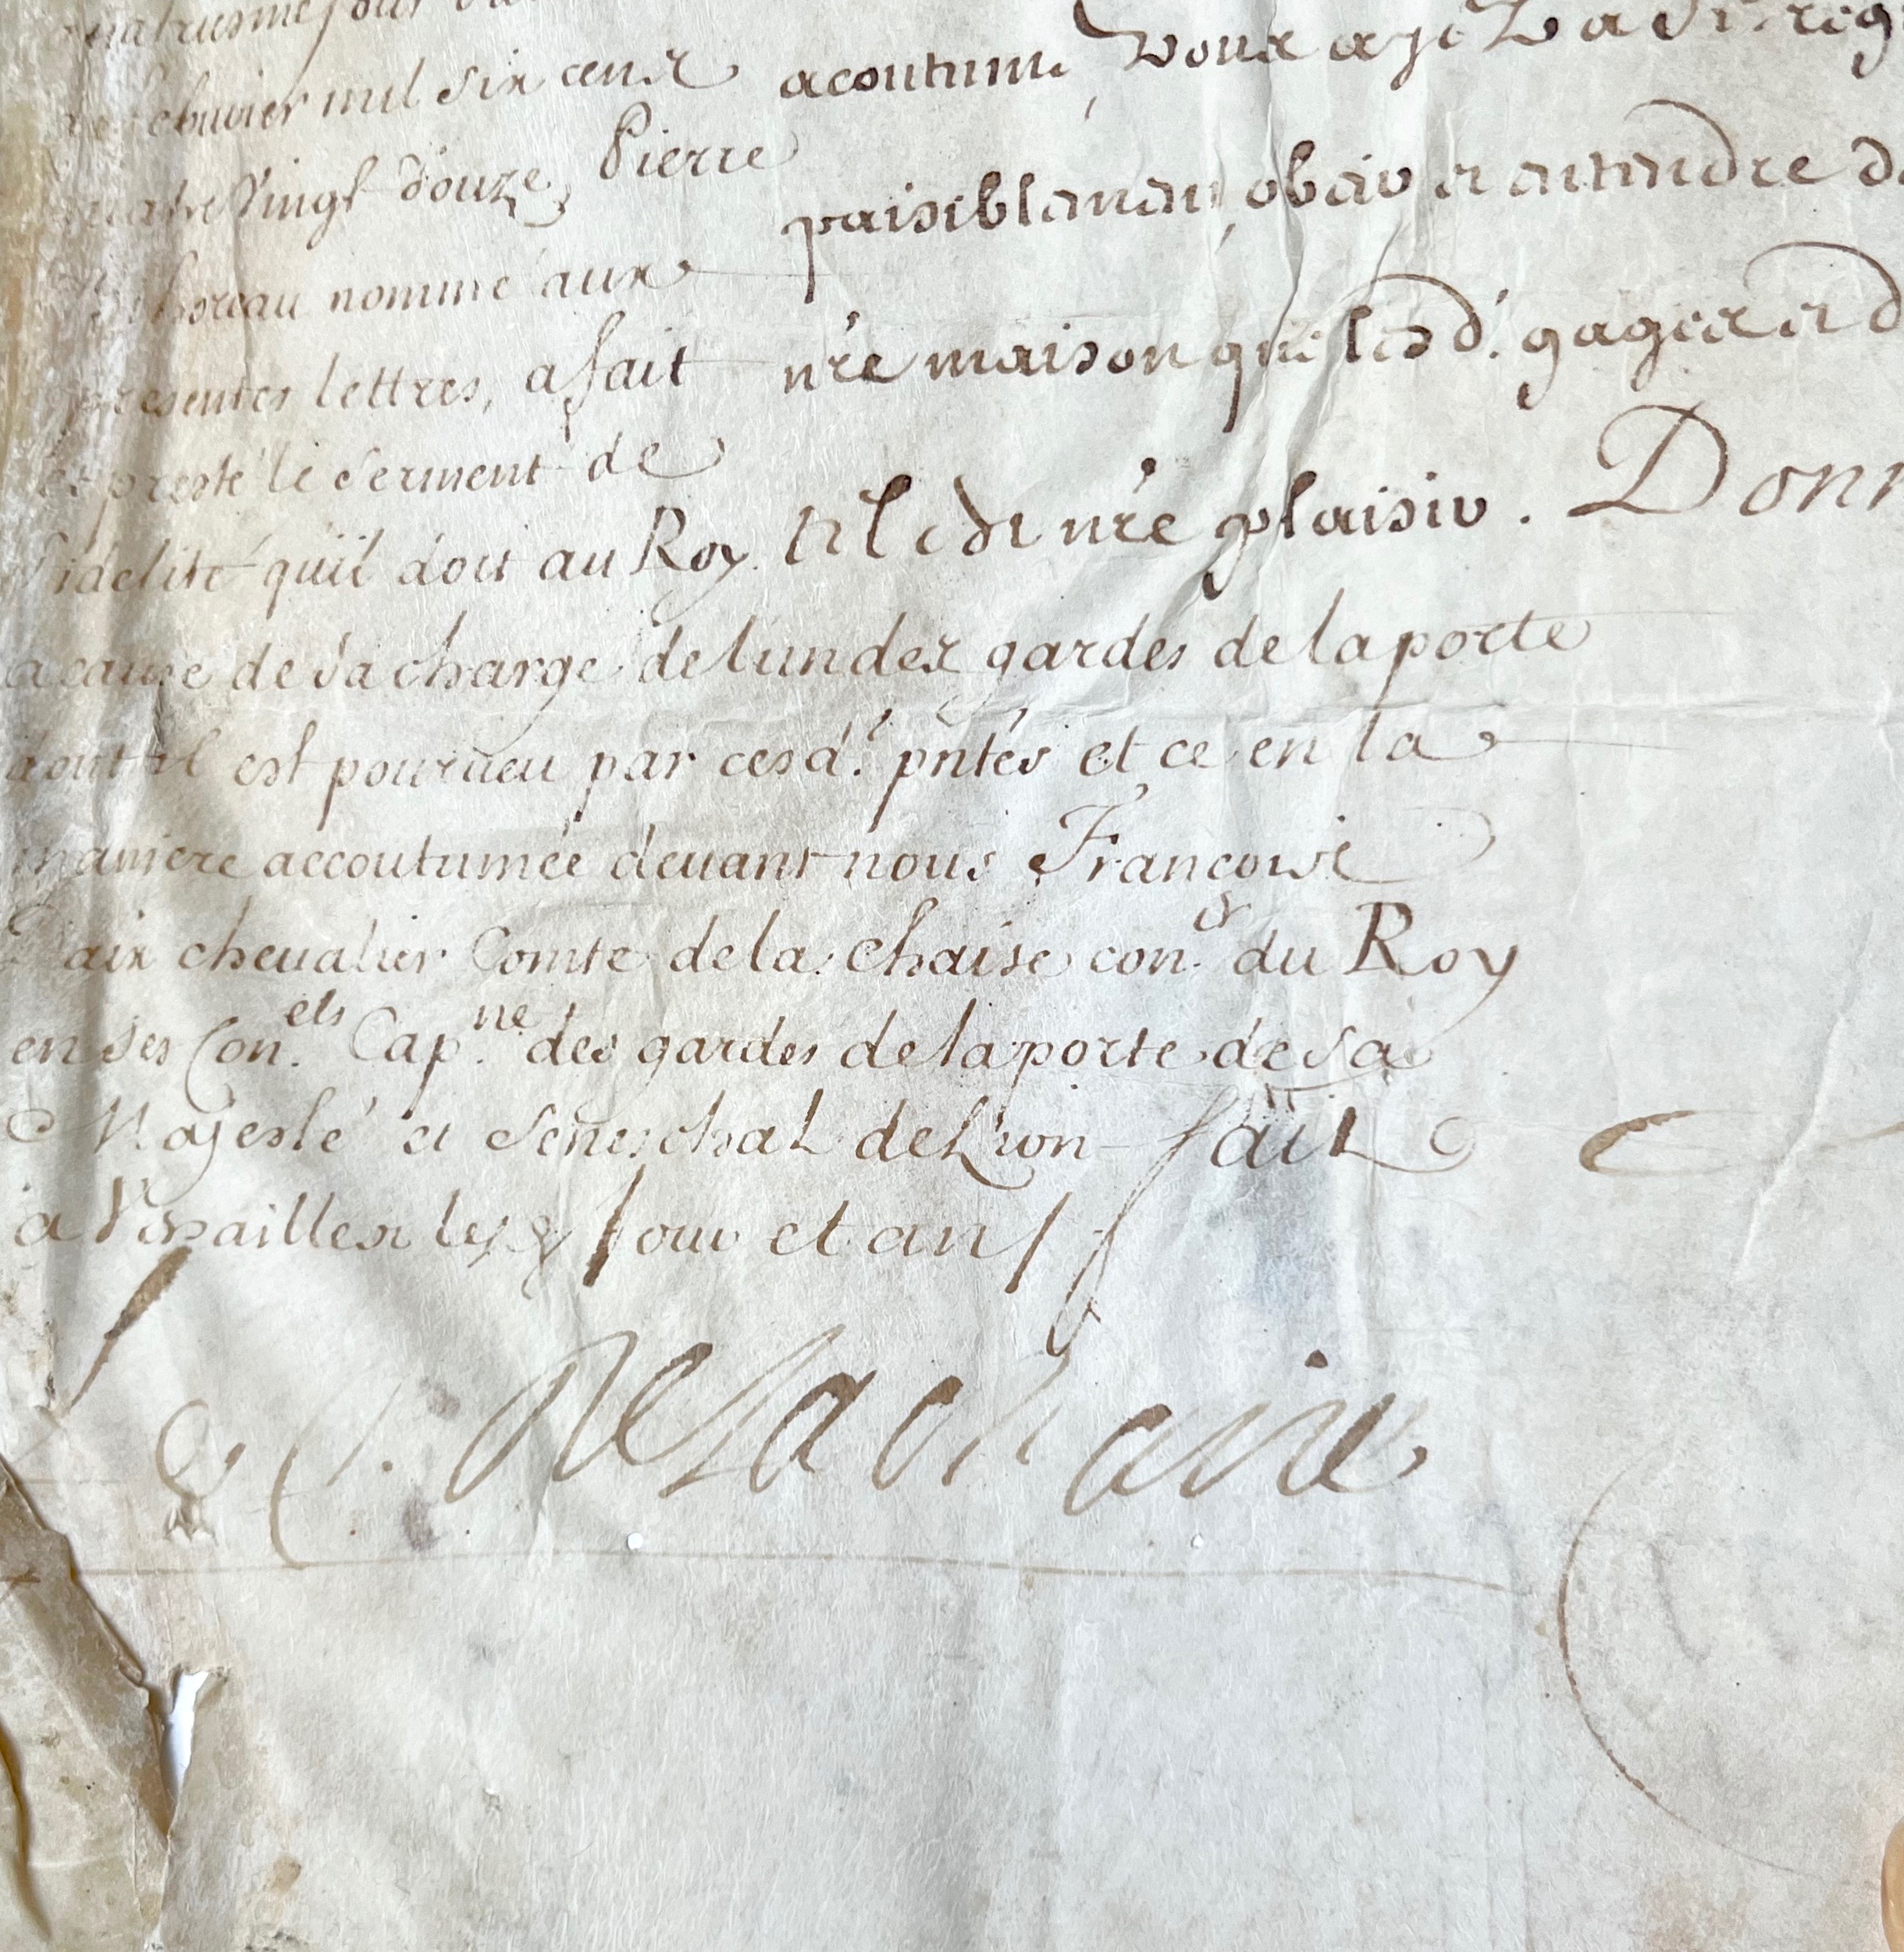 quatriesme jour
de febuvier mil six cens
quatre Vingt douze, Pierre
nomme aux
presentes lettres, a fait
et presté le serment de
fidelité quil doit au Roy
a cause de sa charge de lun des gardes de la porte
dont il est pourueu par ces d. pntes et ce en la
maniere accoutumée deuant nous François
Daix cheualier Comte de la chaise con.er du Roy
en ses Con.els Cap.ne des gardes de la porte de sa
Majesté et seneschal de Lion fait
a Versailles les jour et an
De la chaise
acoutumé Vous ayez
paisiblement, obeir et entendre
n're maison que les d. gages et d
tel est n're plaisir. Donn